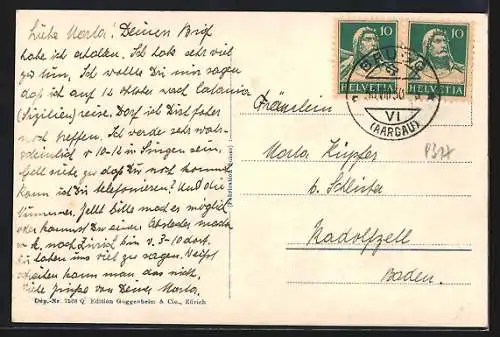 Liebe Marta! Deinen Brief
habe ich erhalten. Ich hab sehr viel
zu tun. Ich wollte Dir nur sagen
daß ich auf 16 Oktober nach Catania
(Sizilien) reise. Darf ich Dich vorher
noch treffen. Ich werde sehr wahr-
scheinlich v 10-12 in Singen sein.
zu daß Du noch kommst
kann ich Dir telefonieren? Und die
Nummer. Jetzt bitte mach es möglich
oder kommst Du einen Abstecher
noch Zürich bin v. 3-10 dort.
haben uns viel zu sagen.
kann man das nicht.
Grüße von Deiner Marta.
Dep.-Nr. 7568 Q Edition Guggenheim & Co., Zürich
10 10
HELVETIA HELVETIA
BRUGG
VI
(AARGAU)
Fräulein
Marta Küpfer
b.
Radolfzell
Baden.